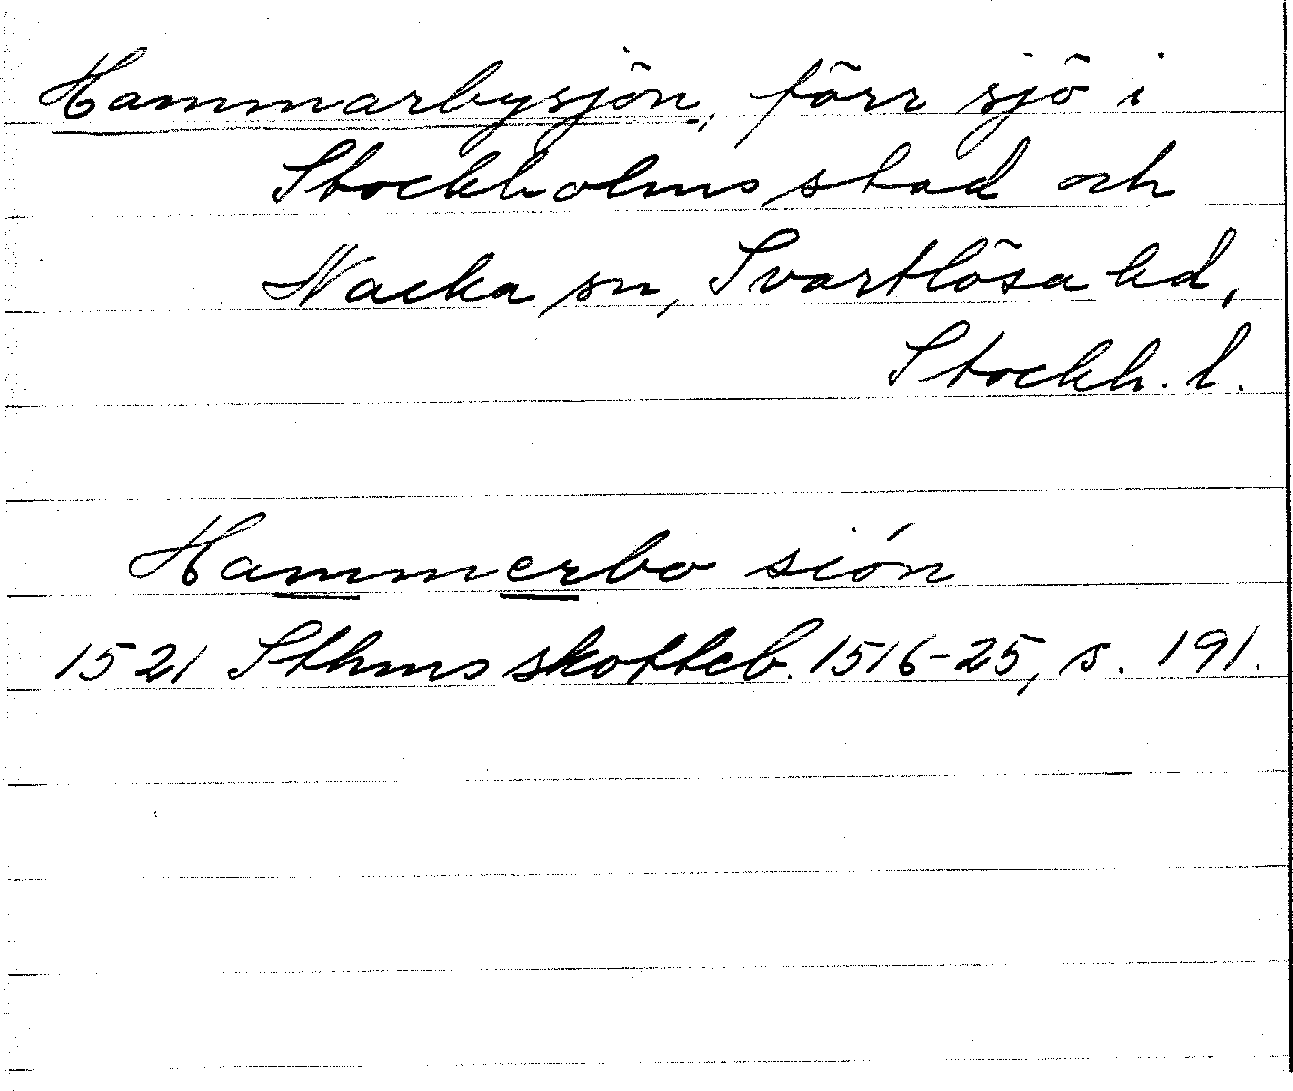 Hammarbysjön, förr sjö i
Stockholms stad och
Nacka sn, Svartlösa hd,
Stockh. l.
Hammerbo sión
1521 Sthms skotteb. 1516-25, s. 191.